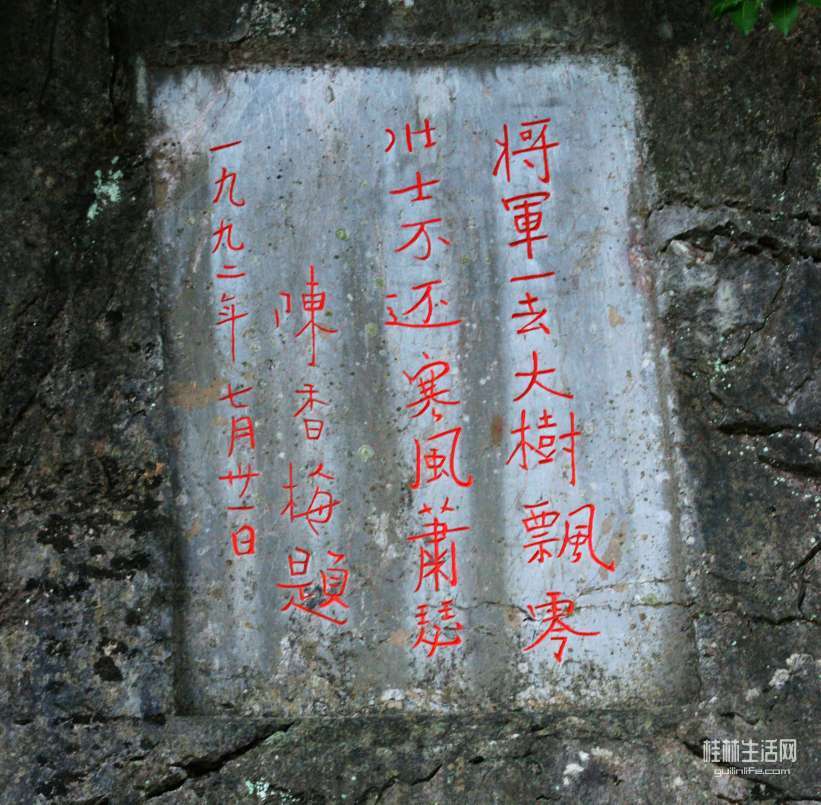 将軍一去大樹飄零
壮士不还寒風蕭瑟
陳香梅題
一九九二年七月卅一日
桂林生活网
guilinlife.com